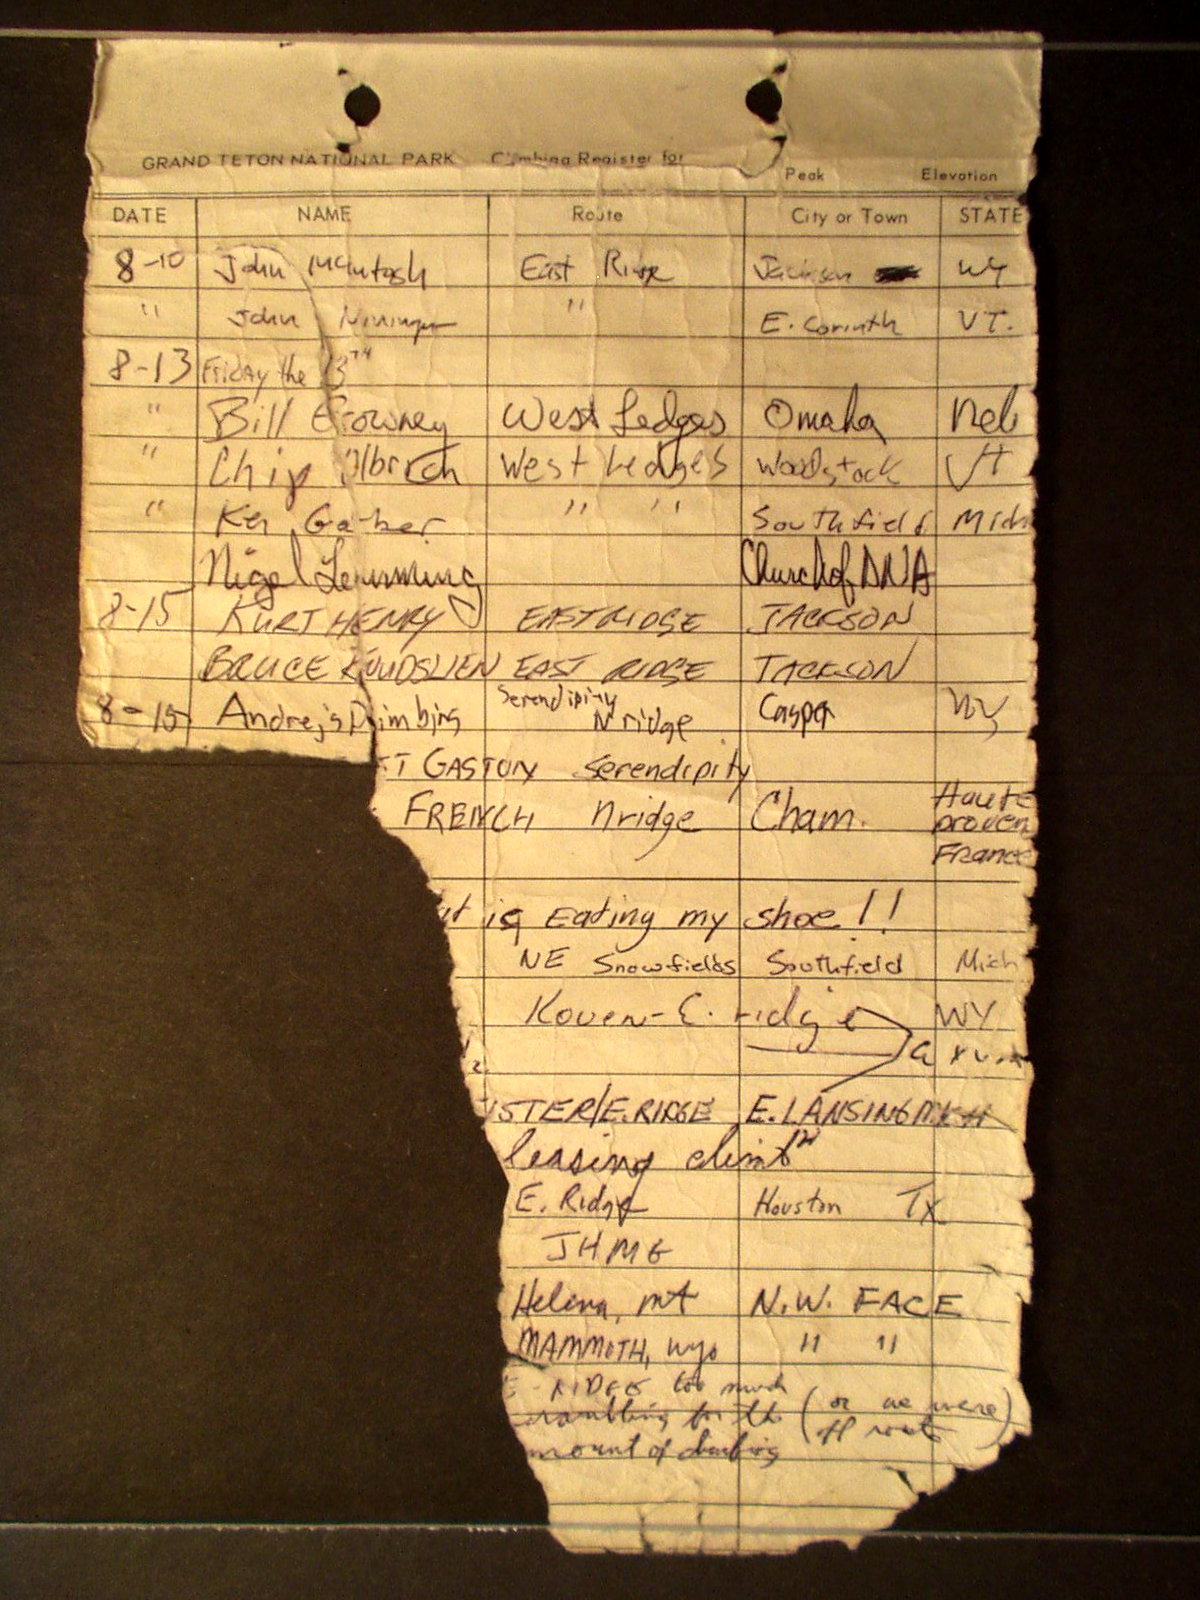 GRAND TETON NATIONAL PARK Climbing Register for
Peak Elevation
DATE NAME Route City or Town STATE
8-10 John McIntosh East Ridge Jackson WY
" John " E. Corinth VT.
8-13 Friday the 13TH
" Bill Crowney West Ledges Omaha Neb
" Chip Olbrich West Ledges Woodstock Vt
" Ken " " Southfield Mich
Nigel Lemming Church of DNA
8-15 KURT HENRY EAST RIDGE JACKSON
BRUCE EAST RIDGE JACKSON
8-15 Andrejs Dimbirs Serendipity N ridge Casper Wy
TT GASTON Serendipity
FRENCH N ridge Cham. Haute proven France
is Eating my shoe!!
NE Snowfields Southfield Mich
Koven - E. ridge WY
STER/E.RIDGE E. LANSING
leasing climb"
E. Ridge Houston Tx
JHMG
Helena, mt N.W. FACE
MAMMOTH, wyo " "
E - RIDGE too much
for the (or we were
off route)
mount of climbing